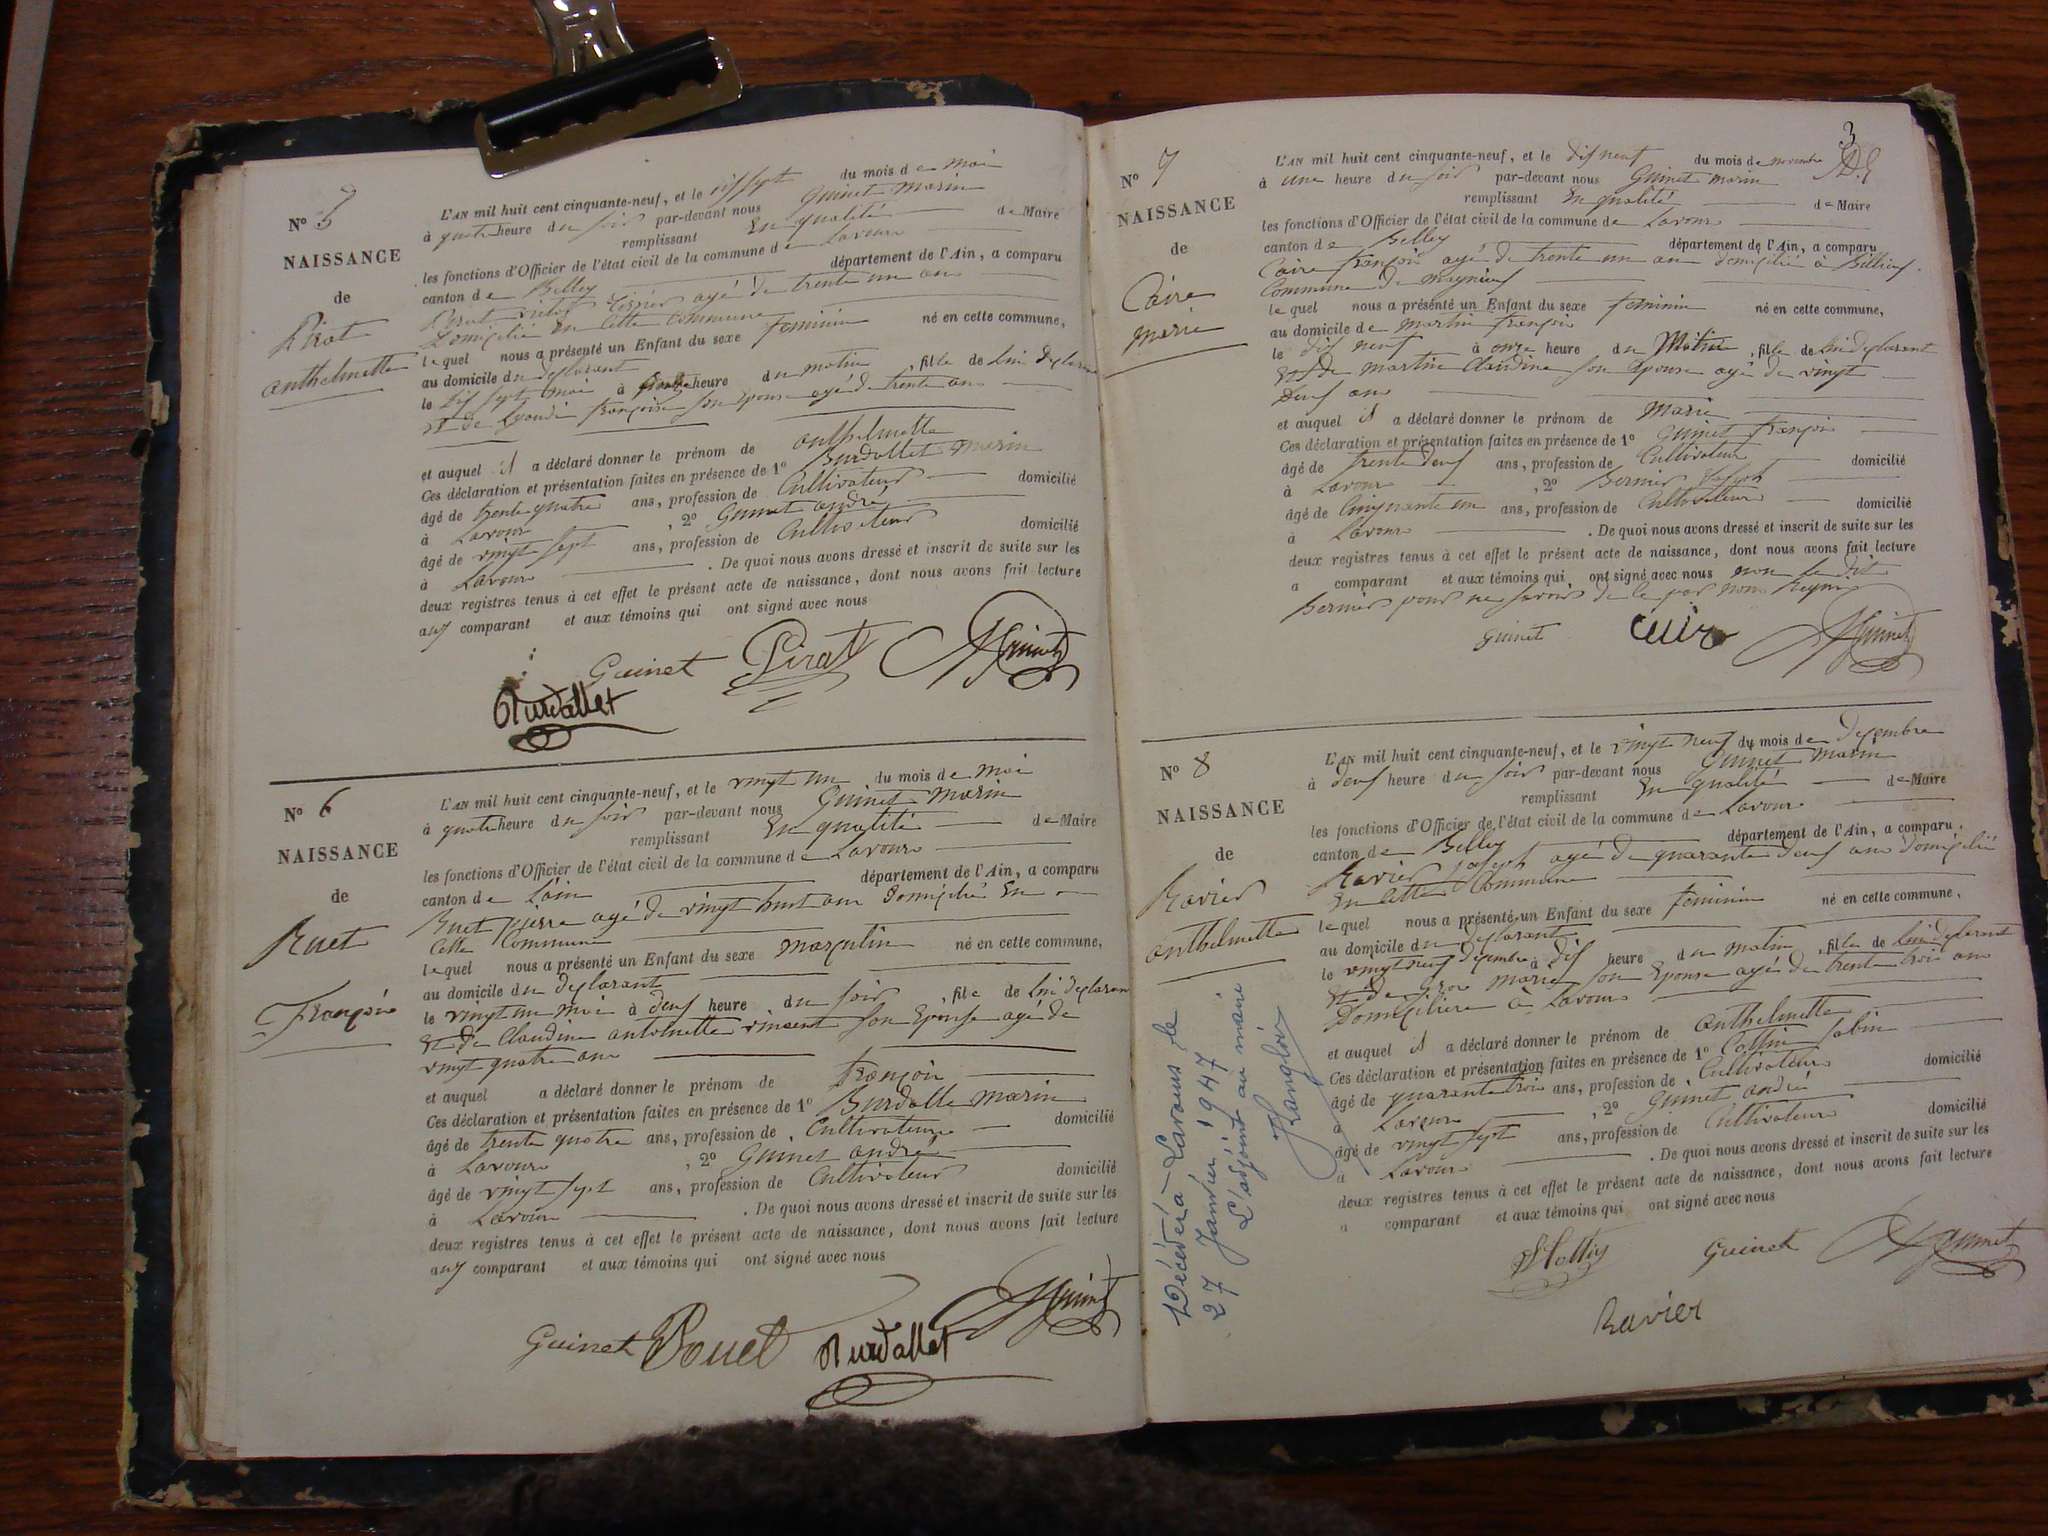 N° 5
NAISSANCE
de
Pirat
anthelmette
L'AN mil huit cent cinquante-neuf, et le dis sept du mois de mai
à quatre heure du soir par-devant nous Guinet marin
remplissant En qualité de Maire
les fonctions d'Officier de l'état civil de la commune de Lavour
canton de Belley département de l'Ain, a comparu
Pirat agé de trente un an
Domicilié En cette Commune
lequel nous a présenté un Enfant du sexe feminin né en cette commune,
au domicile du déclarant
le dis sept mai à heure du matin, fille de lui déclarant
Et de françoise son Epouse agé de trente ans
et auquel il a déclaré donner le prénom de anthelmette
Ces déclaration et présentation faites en présence de 1° Burdallet marin
âgé de trente quatre ans, profession de Cultivateur domicilié
à Lavour, 2° Guinet andré
âgé de vingt sept ans, profession de Cultivateur domicilié
à Lavour. De quoi nous avons dressé et inscrit de suite sur les
deux registres tenus à cet effet le présent acte de naissance, dont nous avons fait lecture
aux comparant et aux témoins qui ont signé avec nous
Guinet Pirat Guinet
Burdallet
N° 6
NAISSANCE
de
Ruet
François
L'AN mil huit cent cinquante-neuf, et le vingt un du mois de mai
à quatre heure du soir par-devant nous Guinet marin
remplissant En qualité de Maire
les fonctions d'Officier de l'état civil de la commune de Lavour
canton de L'ain département de l'Ain, a comparu
Ruet pierre agé de vingt huit an Domicilié En
Cette Commune
lequel nous a présenté un Enfant du sexe masculin né en cette commune,
au domicile du déclarant
le vingt un mai à deux heure du soir, fils de lui déclarant
Et de Claudine antoinette vincent son Epouse agé de
vingt quatre an
et auquel a déclaré donner le prénom de françois
Ces déclaration et présentation faites en présence de 1° Burdalle marin
âgé de trente quatre ans, profession de Cultivateur domicilié
à Lavour, 2° Guinet andré
âgé de vingt sept ans, profession de Cultivateur domicilié
à Lavour. De quoi nous avons dressé et inscrit de suite sur les
deux registres tenus à cet effet le présent acte de naissance, dont nous avons fait lecture
aux comparant et aux témoins qui ont signé avec nous
Guinet Rouet Burdallet Guinet
3
N° 7
NAISSANCE
de
Caire
marie
L'AN mil huit cent cinquante-neuf, et le dis neuf du mois de novembre
à une heure du soir par-devant nous Guinet marin
remplissant En qualité de Maire
les fonctions d'Officier de l'état civil de la commune de Lavour
canton de Belley département de l'Ain, a comparu
Caire françois agé de trente un an domicilié à Billieu
Commune de magnieu
lequel nous a présenté un Enfant du sexe feminin né en cette commune,
au domicile de martin françois
le dis neuf à onze heure du Matin, fille de lui déclarant
Et de martin Claudine son Epouse agé de vingt
deux ans
et auquel il a déclaré donner le prénom de marie
Ces déclaration et présentation faites en présence de 1° Guinet françois
âgé de trente deux ans, profession de Cultivateur domicilié
à Lavour, 2° Bernier Joseph
âgé de Cinquante un ans, profession de Cultivateur domicilié
à Lavour. De quoi nous avons dressé et inscrit de suite sur les
deux registres tenus à cet effet le présent acte de naissance, dont nous avons fait lecture
a comparant et aux témoins qui ont signé avec nous non le dit
Bernier pour ne savoir de le par nous Requis
guinet Guinet
N° 8
NAISSANCE
de
Ravier
anthelmette
L'AN mil huit cent cinquante-neuf, et le vingt neuf du mois de Décembre
à deux heure du soir par-devant nous Guinet marin
remplissant En qualité de Maire
les fonctions d'Officier de l'état civil de la commune de Lavour
canton de Belley département de l'Ain, a comparu
Ravier Joseph agé de quarante deux ans Domicilié
En Cette Commune
lequel nous a présenté un Enfant du sexe feminin né en cette commune,
au domicile du déclarant
le vingt neuf décembre à dix heure du matin, fille de lui déclarant
Et de Gros marie son Epouse agé de trente trois ans
Domiciliere à Lavour
et auquel il a déclaré donner le prénom de anthelmette
Ces déclaration et présentation faites en présence de 1° Cottin Sabin
âgé de quarante trois ans, profession de Cultivateur domicilié
à Lavour, 2° Guinet andré
âgé de vingt sept ans, profession de Cultivateur domicilié
à Lavour. De quoi nous avons dressé et inscrit de suite sur les
deux registres tenus à cet effet le présent acte de naissance, dont nous avons fait lecture
a comparant et aux témoins qui ont signé avec nous
Guinet Guinet
Ravier
Décédée à Lavours le
27 Janvier 1947
L'adjoint au maire